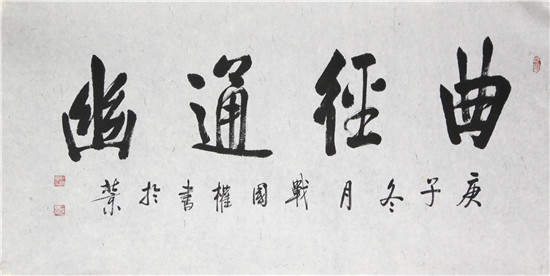 曲徑通幽
庚子冬月戰國權書於葉